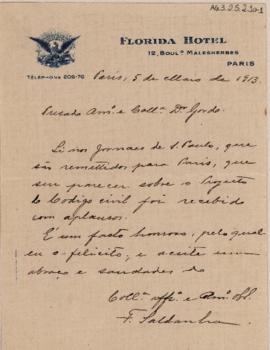 AG3.25.2.30-1
FLORIDA HOTEL
12, BOULD MALESHERBES
PARIS
TÉLÉPHONE 209-76
Paris, 5 de Maio de 1913.
Presado Amo. e Colla. Dr. Gordo
Li nos jornaes de S. Paulo, que
são remettidos para Paris, que
seu parecer sobre o Projecto
do Codigo civil foi recebido
com aplausos.
É um facto honroso, pelo qual
eu o felicito, e aceite um
abraço e saudades do
Colla. affo. e Amo.
F. Saldanha